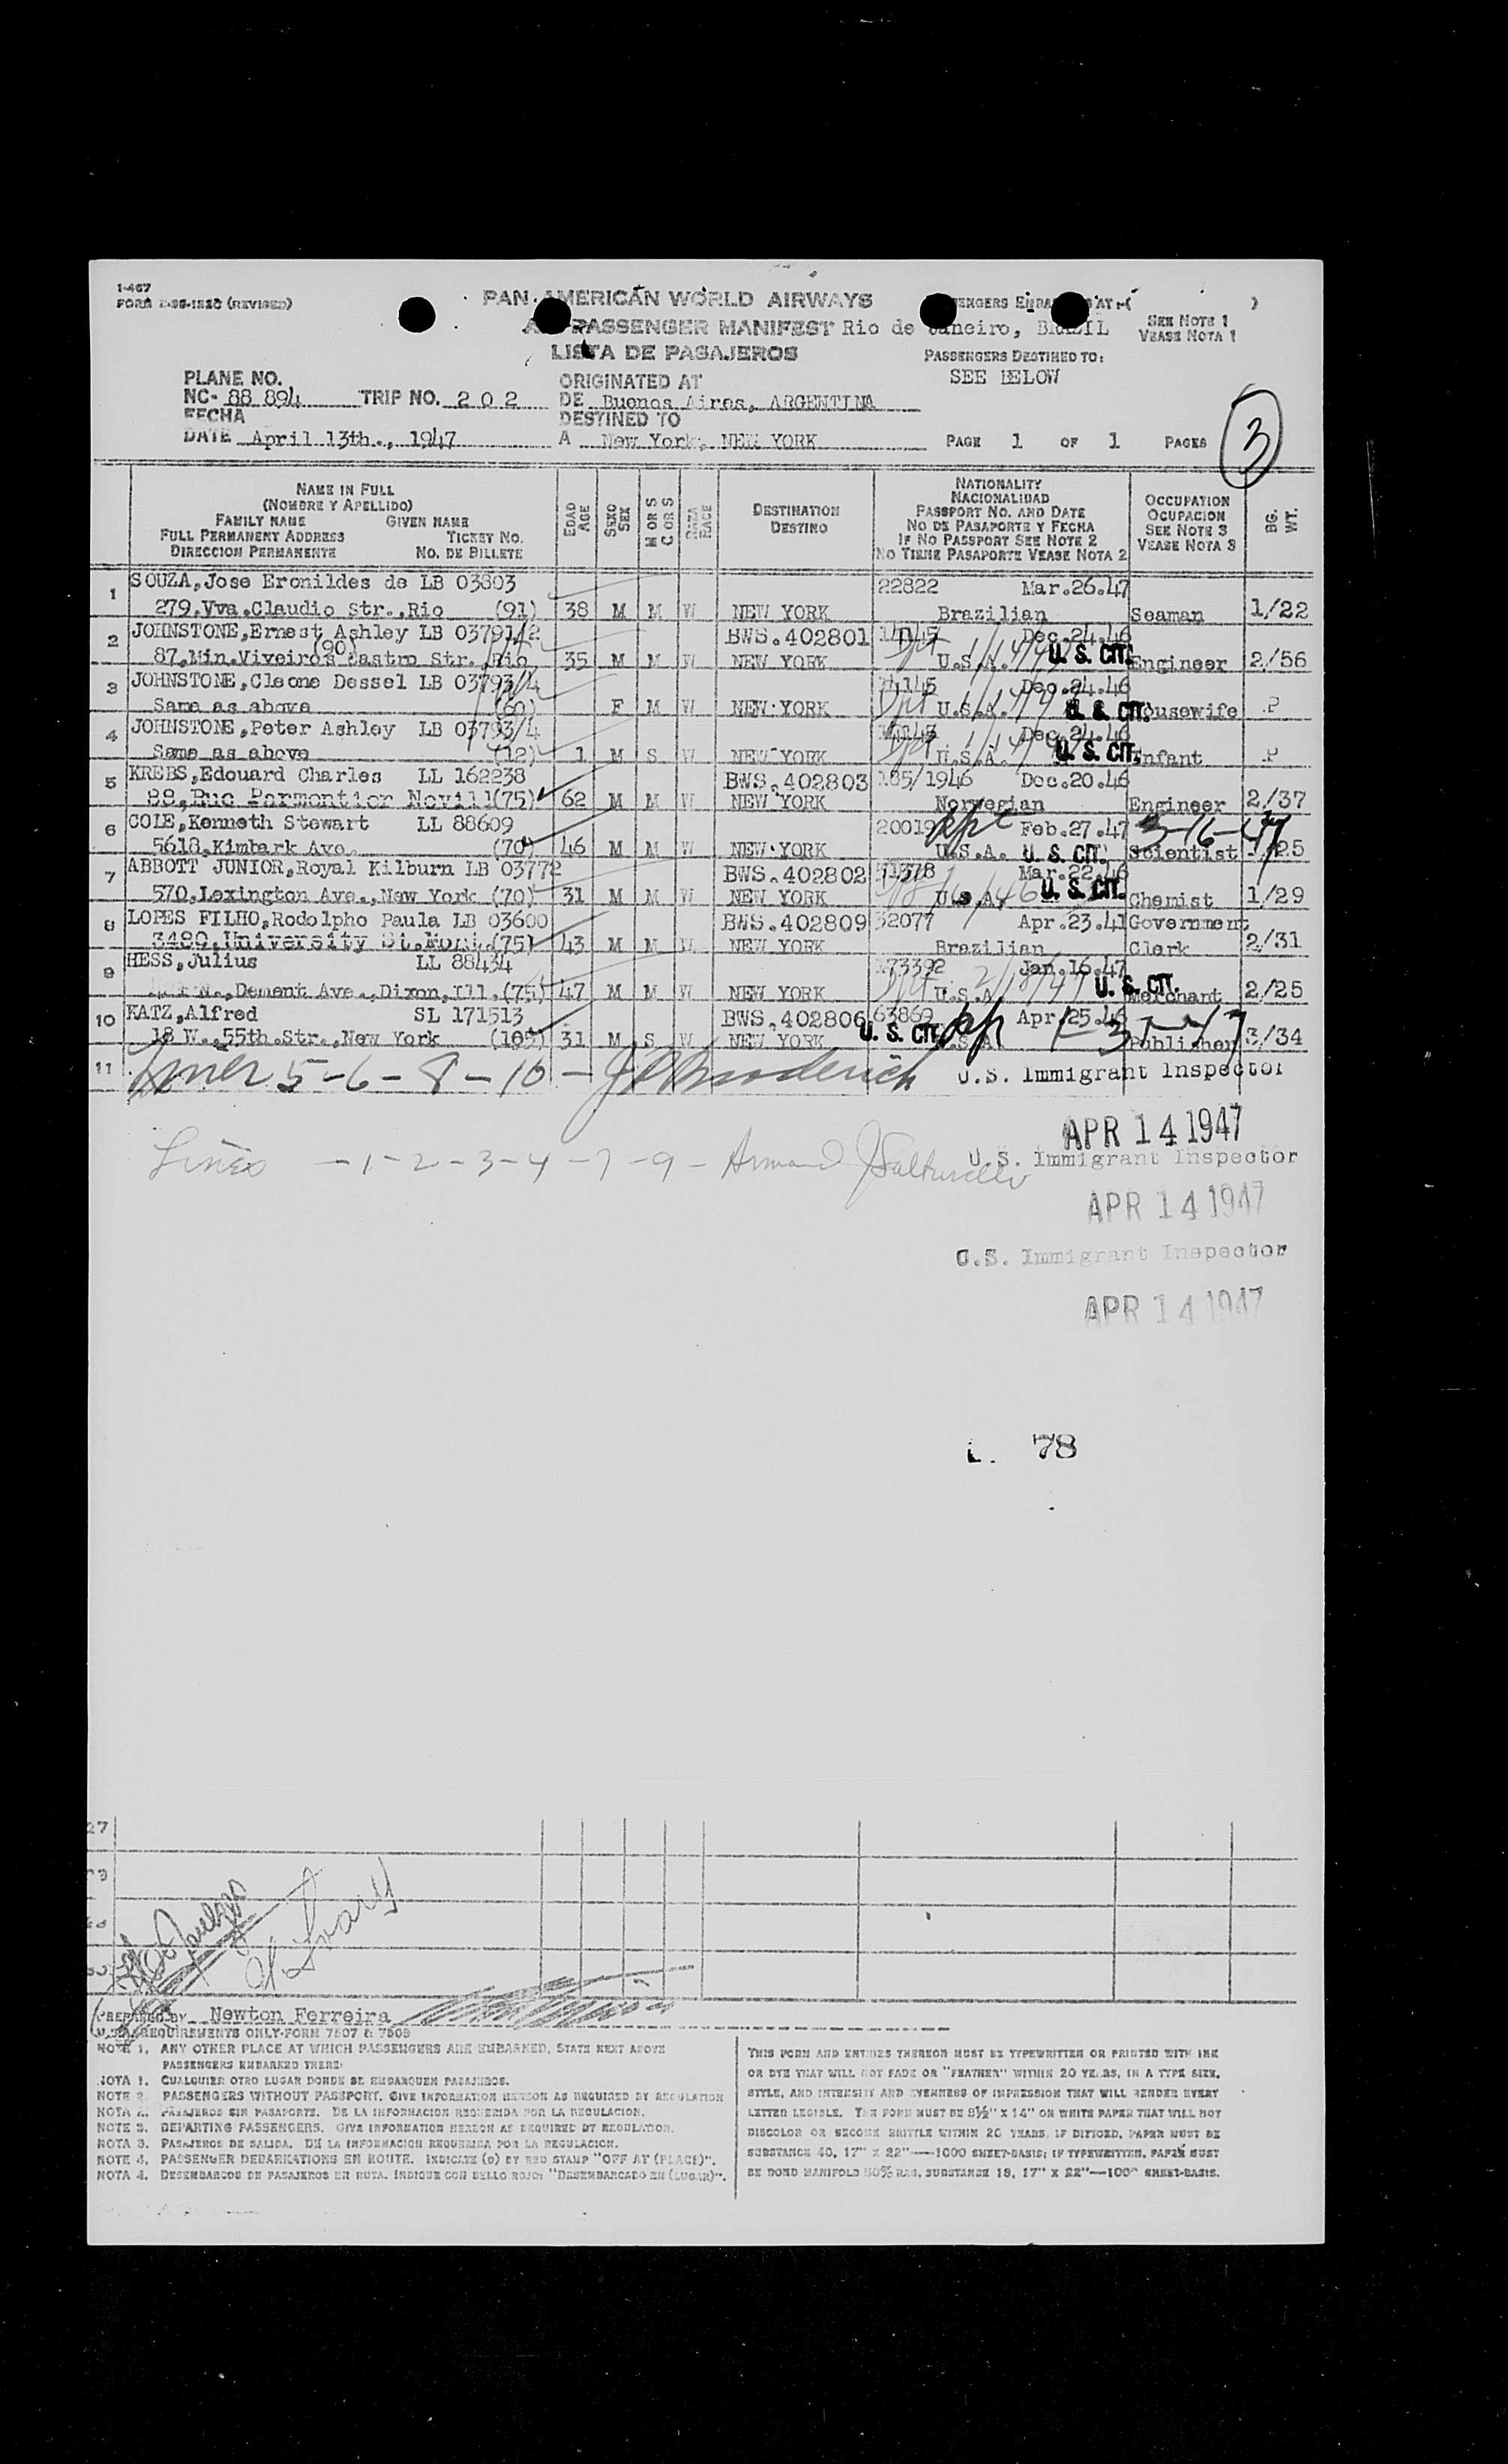 1-467
FORM (REVISED)
PAN AMERICAN WORLD AIRWAYS
PASSENGER MANIFEST Rio de Janeiro, BRAZIL
LISTA DE PASAJEROS
SEE NOTE 1
VEASE NOTA 1
PASSENGERS DESTINED TO:
SEE BELOW
PLANE NO.
NC- 88 894 TRIP NO. 2 0 2
FECHA
DATE April 13th., 1947
ORIGINATED AT
DE Buenos Aires, ARGENTINA
DESTINED TO
A New York, NEW YORK
PAGE 1 OF 1 PAGES
3
NAME IN FULL
(NOMBRE Y APELLIDO)
FAMILY NAME GIVEN NAME
FULL PERMANENT ADDRESS TICKET NO.
DIRECCION PERMANENTE NO. DE BILLETE
EDAD
AGE
SEXO
SEX
M OR S
C OR S
RAZA
RACE
DESTINATION
DESTINO
NATIONALITY
NACIONALIDAD
PASSPORT NO. AND DATE
NO DE PASAPORTE Y FECHA
IF NO PASSPORT SEE NOTE 2
NO TIENE PASAPORTE VEASE NOTA 2
OCCUPATION
OCUPACION
SEE NOTE 3
VEASE NOTA 3
BG.
WT.
1 SOUZA,Jose Eronildes de LB 03803 22822 Mar.26.47
279,Vva.Claudio Str.,Rio (91) 38 M M W NEW YORK Brazilian Seaman 1/22
2 JOHNSTONE,Ernest Ashley LB 03791/2 BWS.402801 14145 Dec.24.46
(90)
87,Min.Viveiros Castro Str.,Rio 35 M M W NEW YORK U.S.A. U. S. CIT. Engineer 2/56
3 JOHNSTONE,Cleone Dessel LB 03793/4 14145 Dec.24.46
Same as above (60) F M W NEW YORK U.S.A. U. S. CIT. Housewife P
4 JOHNSTONE,Peter Ashley LB 03793/4 14145 Dec.24.46
Same as above (12) 1 M S W NEW YORK U.S.A. U. S. CIT. Infant P
5 KREBS,Edouard Charles LL 162238 BWS.402803 185/1946 Dec.20.46
88,Rue Parmentier (75) 62 M M W NEW YORK Norwegian Engineer 2/37
6 COLE,Kenneth Stewart LL 88609 20019 Feb.27.47 3-16-47
5618,Kimbark Ave. (70) 46 M M W NEW YORK U.S.A. U. S. CIT. Scientist
7 ABBOTT JUNIOR,Royal Kilburn LB 03772 BWS.402802 51378 Mar.22.46
570,Lexington Ave.,New York (70) 31 M M W NEW YORK U.S.A. U. S. CIT. Chemist 1/29
8 LOPES FILHO,Rodolpho Paula LB 03600 BWS.402809 32077 Apr.23.41 Government
3480,University St. (75) 43 M M W NEW YORK Brazilian Clerk 2/31
9 HESS,Julius LL 88434 173392 Jan.16.47
N.,Dement Ave.,Dixon,Ill.(75) 47 M M W NEW YORK U.S.A. U. S. CIT. Merchant 2/25
10 KATZ,Alfred SL 171513 BWS.402806 63869 Apr.25.46
18 W.,55th.Str.,New York (105) 31 M S W NEW YORK U. S. CIT. U.S.A. Publisher 3/34
11 Lines 5-6-8-10- Broderick U.S. Immigrant Inspector
APR 14 1947
Lines -1-2-3-4-7-9- Armand U.S. Immigrant Inspector
APR 14 1947
U.S. Immigrant Inspector
APR 14 1947
78
27
PREPARED BY Newton Ferreira
REQUIREMENTS ONLY-FORM 7507 & 7509
NOTE 1. ANY OTHER PLACE AT WHICH PASSENGERS ARE EMBARKED, STATE NEXT ABOVE
PASSENGERS EMBARKED THERE.
NOTA 1. CUALQUIER OTRO LUGAR DONDE SE EMBARQUEN PASAJEROS.
NOTE 2. PASSENGERS WITHOUT PASSPORT. GIVE INFORMATION HEREON AS REQUIRED BY REGULATION
NOTA 2. PASAJEROS SIN PASAPORTE. DE LA INFORMACION REQUERIDA POR LA REGULACION.
NOTE 3. DEPARTING PASSENGERS. GIVE INFORMATION HEREON AS REQUIRED BY REGULATION.
NOTA 3. PASAJEROS DE SALIDA. DE LA INFORMACION REQUERIDA POR LA REGULACION.
NOTE 4. PASSENGER DEBARKATIONS EN ROUTE. INDICATE (D) BY RED STAMP "OFF AT (PLACE)".
NOTA 4. DESEMBARCOS DE PASAJEROS EN RUTA. INDIQUE CON SELLO ROJO: "DESEMBARCADO EN (LUGAR)".
THIS FORM AND ENTRIES THEREON MUST BE TYPEWRITTEN OR PRINTED WITH INK
OR DYE THAT WILL NOT FADE OR "FEATHER" WITHIN 20 YEARS, IN A TYPE SIZE,
STYLE, AND INTENSITY AND EVENNESS OF IMPRESSION THAT WILL RENDER EVERY
LETTER LEGIBLE. THE FORM MUST BE 8½" X 14" ON WHITE PAPER THAT WILL NOT
DISCOLOR OR BECOME BRITTLE WITHIN 20 YEARS. IF DITTOED, PAPER MUST BE
SUBSTANCE 40, 17" X 22"—1000 SHEET-BASIS; IF TYPEWRITTEN, PAPER MUST
BE BOND MANIFOLD 50% RAG, SUBSTANCE 18, 17" X 22"—1000 SHEET-BASIS.